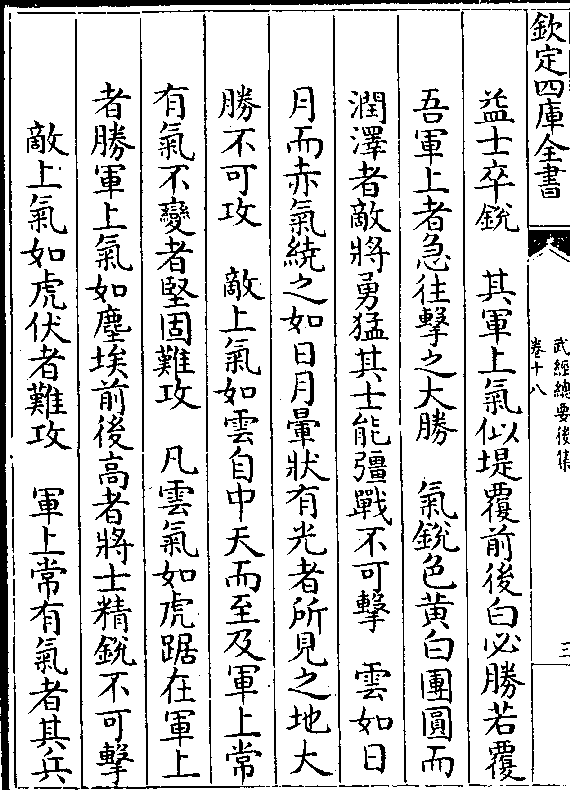 欽定四庫全書
武經總要後集
卷十八
三
益士卒銳　其軍上氣似堤覆前後白必勝若覆
吾軍上者急往擊之大勝　氣銳色黄白團圓而
潤澤者敵將勇猛其士能彊戰不可擊　雲如日
月而赤氣繞之如日月暈狀有光者所見之地大
勝不可攻　敵上氣如雲自中天而至及軍上常
有氣不變者堅固難攻　凡雲氣如虎踞在軍上
者勝軍上氣如塵埃前後高者將士精銳不可擊
敵上氣如虎伏者難攻　軍上常有氣者其兵